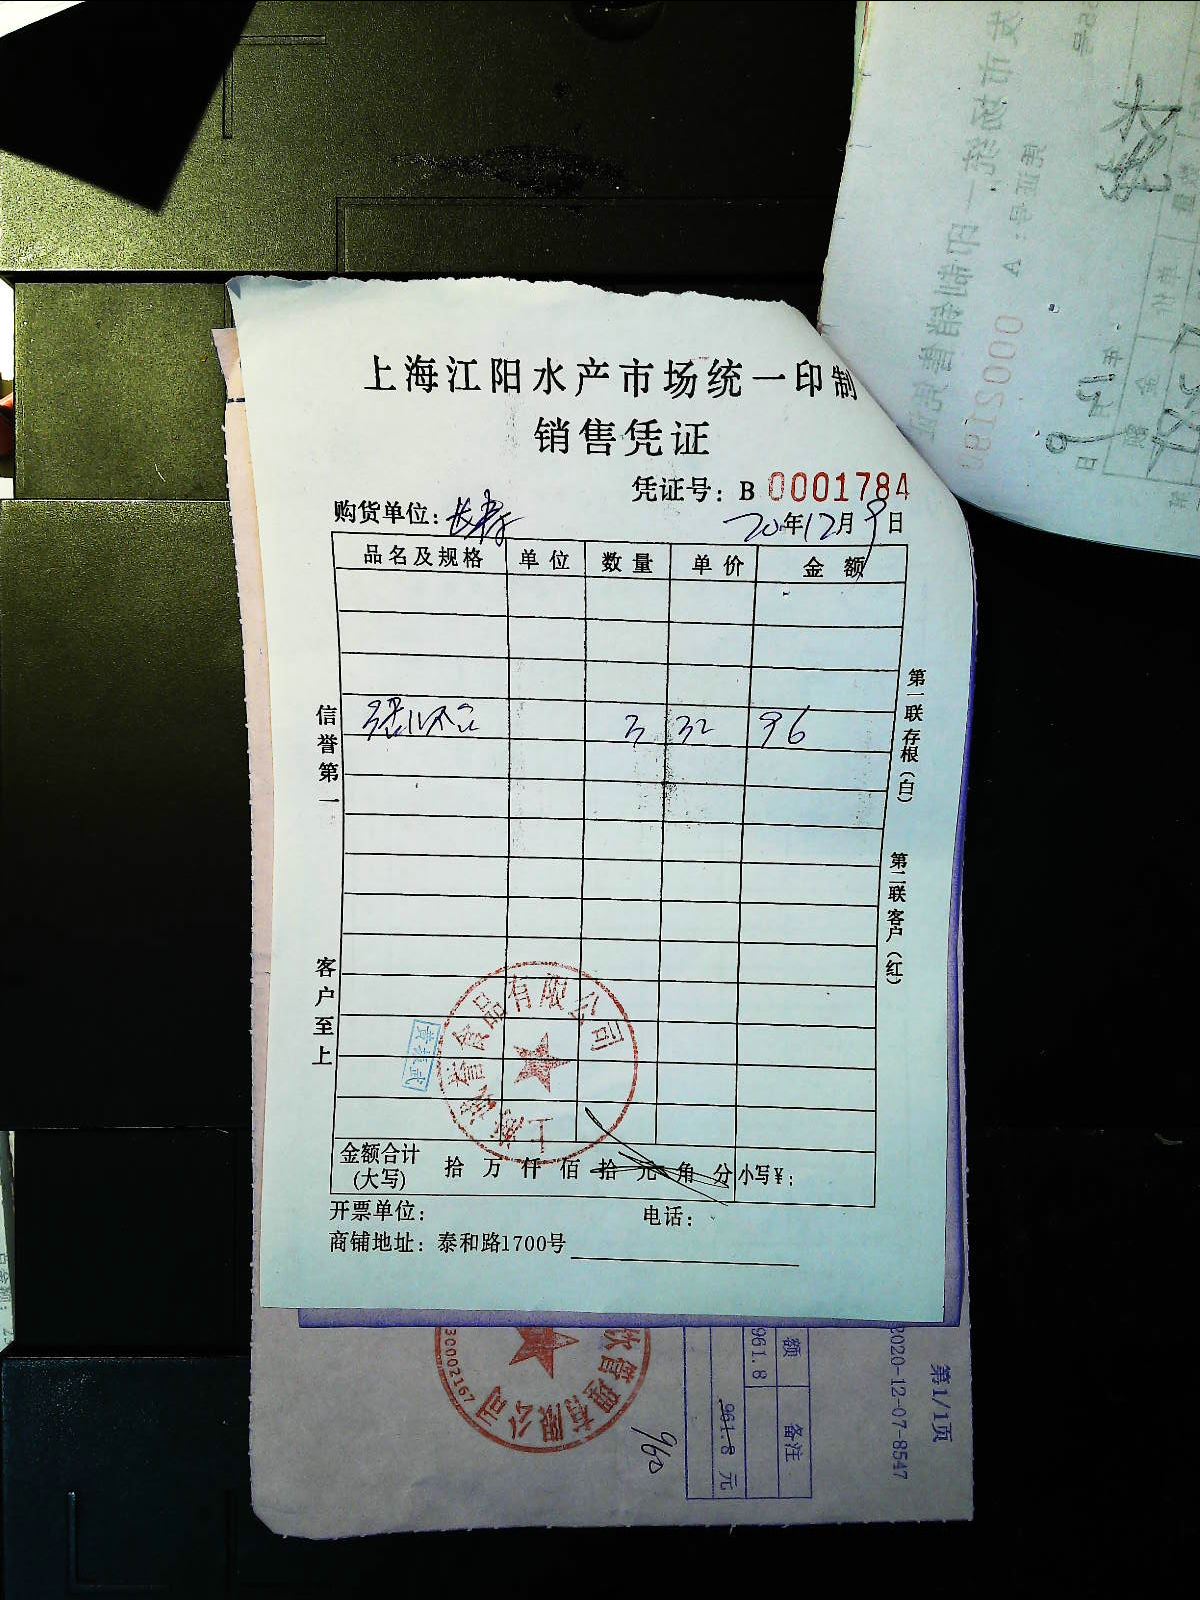 上海江阳水产市场统一印制
销售凭证
凭证号：B 0001784
购货单位：
20年12月9日
品名及规格 单位 数量 单价 金额
3 32 96
信誉第一
客户至上
第一联存根（白）
第二联客户（红）
上海诚誉食品有限公司
金额合计
(大写)
拾 万 仟 佰 拾 元 角 分 小写￥：
开票单位：
电话：
商铺地址：泰和路1700号
饮管理有限公司
30002167
960
额
961.8
备注
961.8 元
2020-12-07-8547
第1/1页
0002180